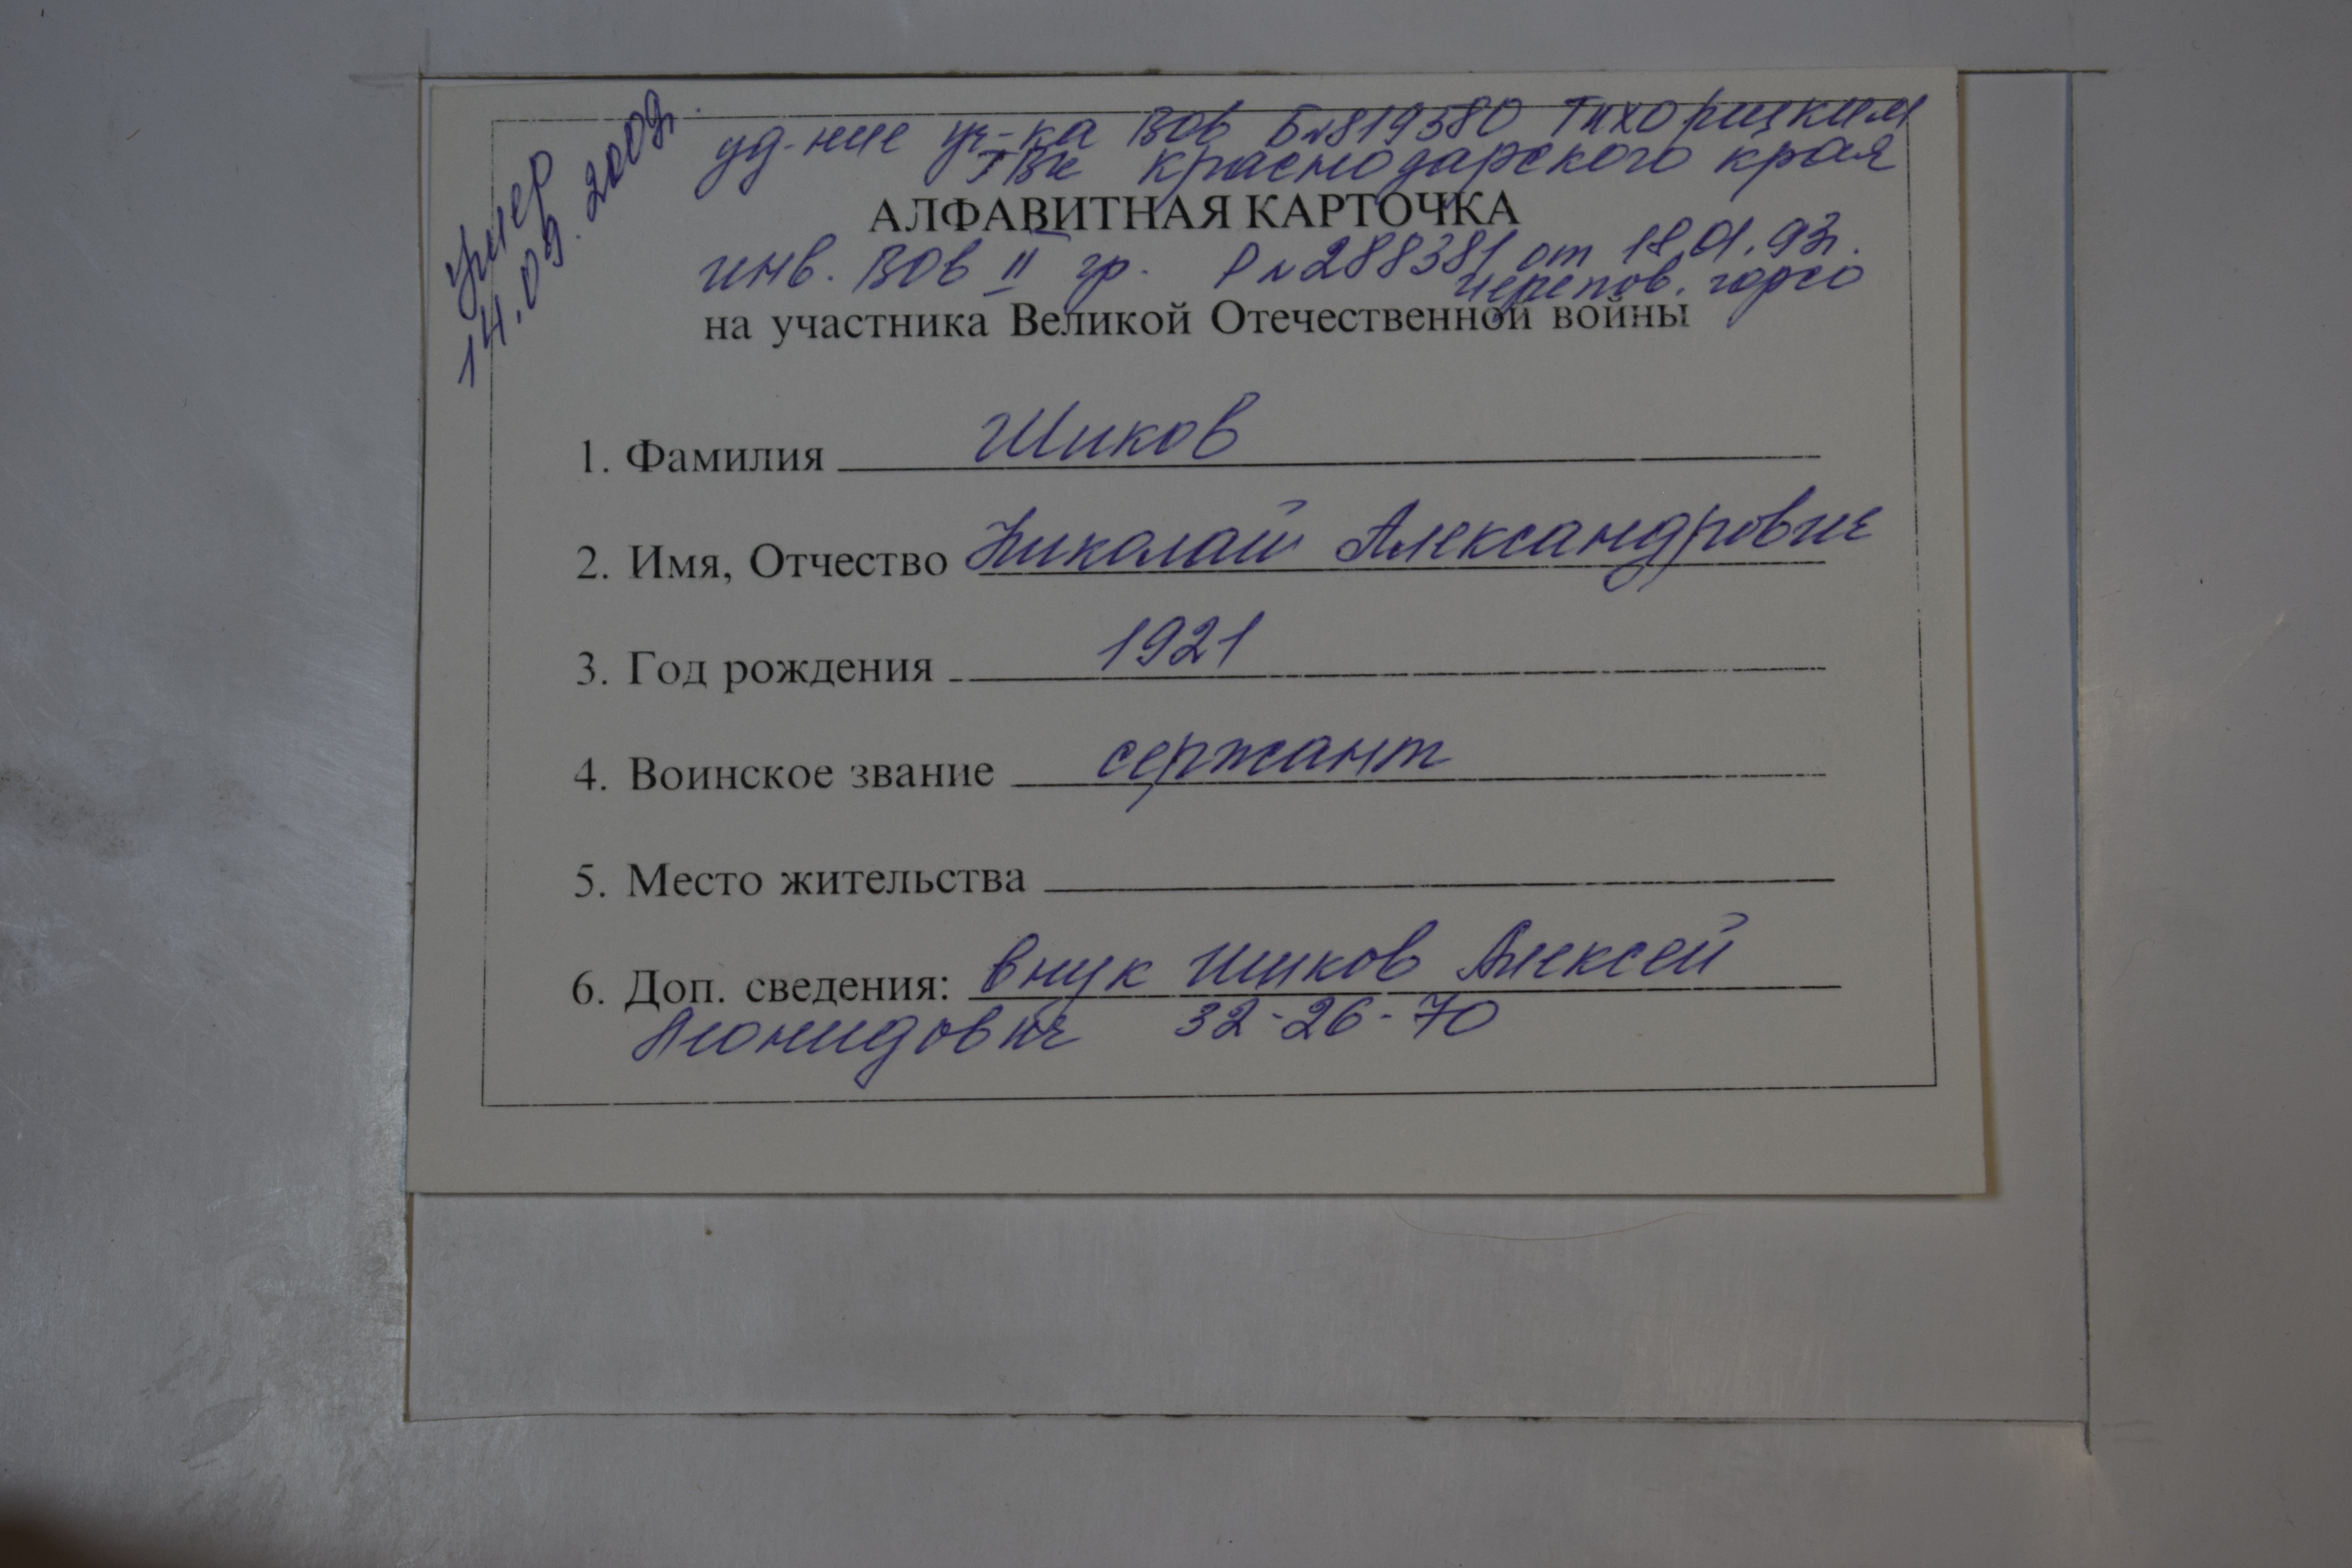 умер
14.09.2009г.
уд-ние уч-ка ВОв Б№819580 Тихорицким
ГВК Краснодарского края
АЛФАВИТНАЯ КАРТОЧКА
инв. ВОв II гр. Р№288381 от 18.01.93г.
черепов. горсо
на участника Великой Отечественной войны
1. Фамилия Шиков
2. Имя, Отчество Николай Александрович
3. Год рождения 1921
4. Воинское звание сержант
5. Место жительства
6. Доп. сведения: внук Шиков Алексей
Леонидович 32-26-70